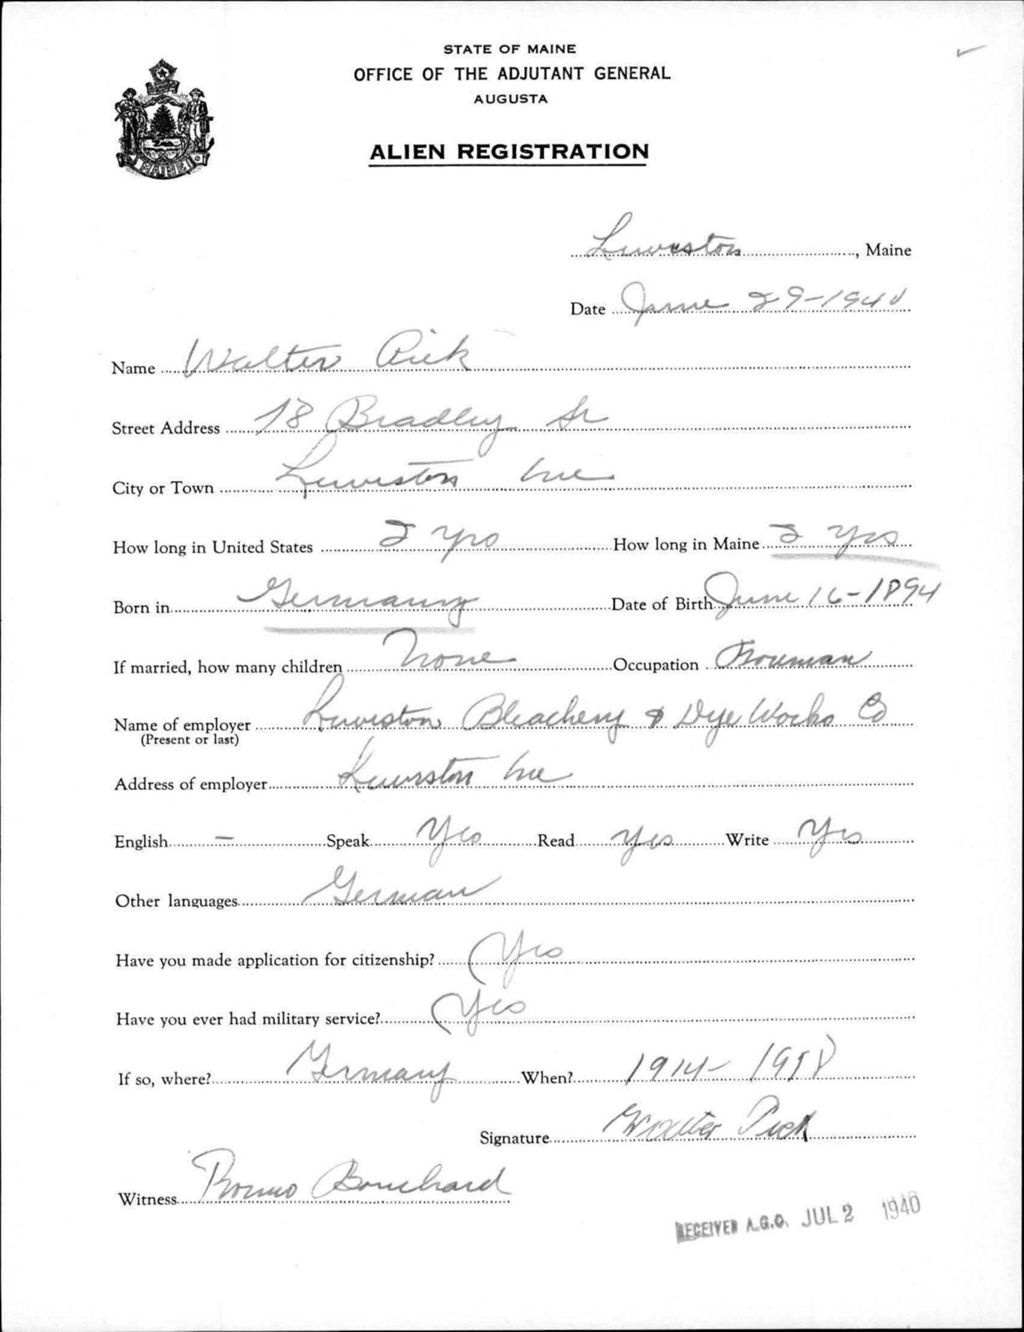 STATE OF MAINE
OFFICE OF THE ADJUTANT GENERAL
AUGUSTA
ALIEN REGISTRATION
MAINE
Lewiston, Maine
Date June 29-1940
Name Walter Pick
Street Address 18 Bradley St
City or Town Lewiston Me
How long in United States 2 Yrs How long in Maine 2 Yrs
Born in Germany Date of Birth June 16-1894
If married, how many children None Occupation
Name of employer Lewiston Bleachery & Dye Works Co
(Present or last)
Address of employer Lewiston Me
English - Speak Yes Read Yes Write Yes
Other languages German
Have you made application for citizenship? Yes
Have you ever had military service? Yes
If so, where? Germany When? 1914-1918
Signature Walter Pick
Witness Romeo Bouchard
RECEIVED A.G.O. JUL 2 1940